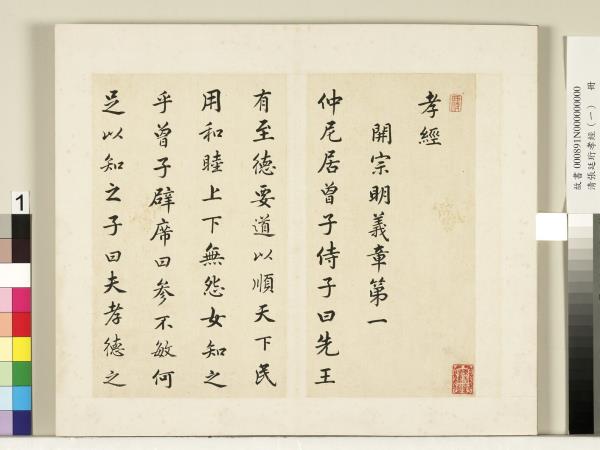 孝經
開宗明義章第一
仲尼居曾子侍子曰先王
有至德要道以順天下民
用和睦上下無怨女知之
乎曾子辟席曰參不敏何
足以知之子曰夫孝德之
故書000891N000000000
清張廷珩孝經（一）　冊
1